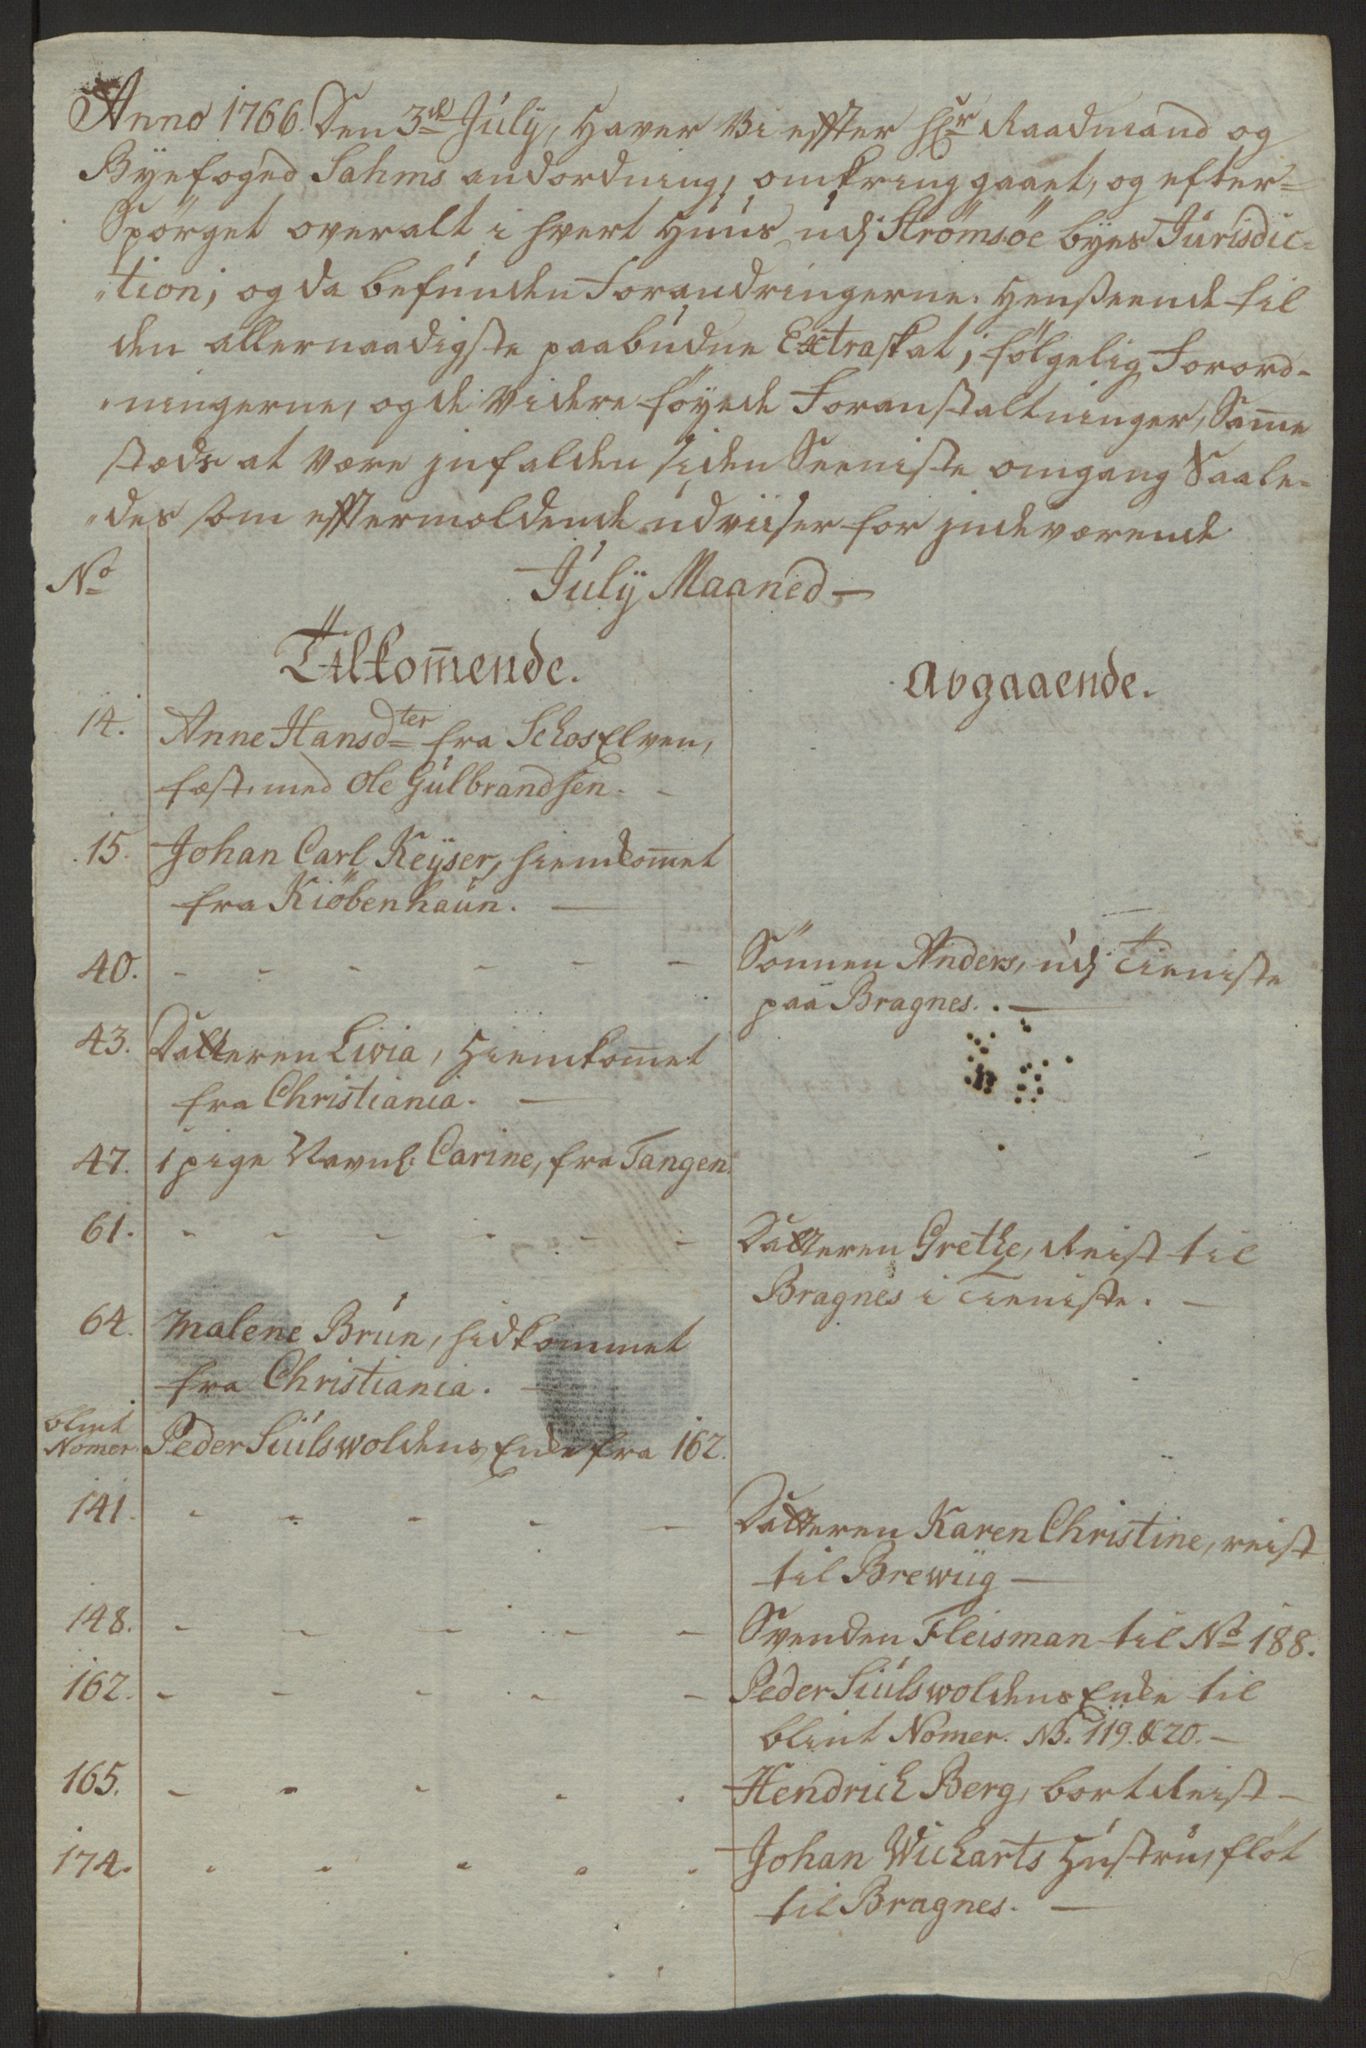 Anno 1766. Den 3de July, Haver Vi effter Hr Raadmand og
Byefoged Sahms andordning, omkring gaaet, og efter=
Spörget overalt i hvert Huus udj Strömsöe byes Jurisdic=
"tion, og da befunden Forandringerne, Henseende til
den allernaadigste paabudne Extraskat, fölgelig Forord-
"ningerne, og de Videre föyede Foranstaltninger, Same
stæds at være jnfalden siden Seeniste omgang Saale=
"des som efftermeldende udviiser for jndeværende
No July Maaned —
Tilkommende. Avgaaende.
14. Anne Hansdter fra Schos Elven,
fæst. med Ole Gulbrandsen. -
15. Johan Carl Keyser, hiemkommet
fra Kiöbenhaun. —
40. - - - - - - Sönnen Anders, udj Tieniste
paa Bragnes. —
43. Datteren Livia, Hiemkommet
fra Christiania. —
47. 1 pige Navnl. Carine, fra Tangen.
61. - - - - - - Datteren Grethe, Reist til
Bragnes i Tieniste. —
64. Malene Brun, hidkommet
fra Christiania. —
blint
Nomer. Peder Siulswoldens Enke fra 162.
141. - - - - - Datteren Karen Christine, reist
til Brewiig —
148. - - - - - Svenden Fleisman til No 188.
162. - - - - - Peder Siulswoldens Enke til
blint Nomer. No. 119. & 20. —
165. - - - - - Hendrich Berg, bort Reist —
174. - - - - - Johan Wicharts Hustru, flöt
til Bragnes. —